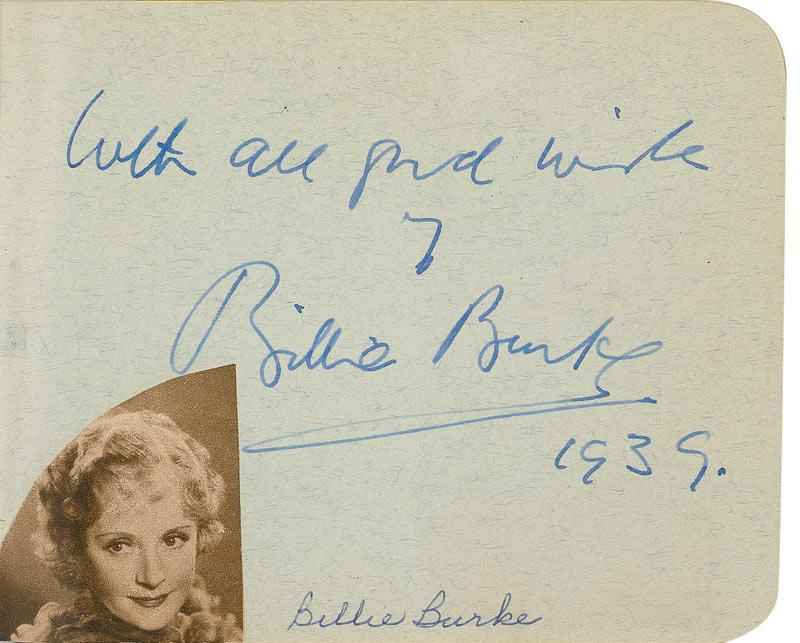 With all good wishe
y
Billie Burke.
1939.
Billie Burke